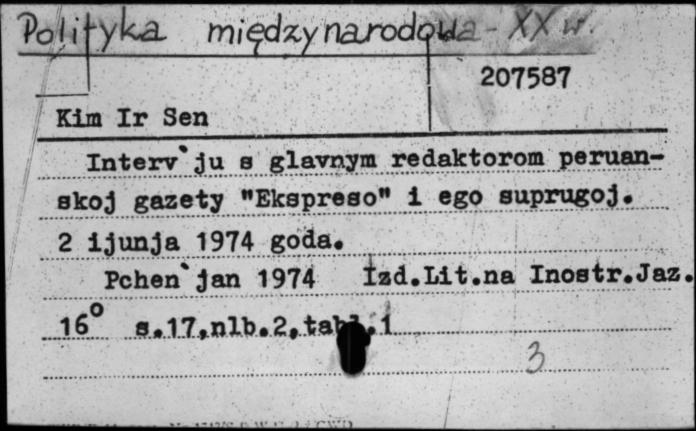 Polityka międzynarodowa - XX w.
207587
Kim Ir Sen
Interv`ju s glavnym redaktorom peruan-
skoj gazety "Ekspreso" i ego suprugoj.
2 ijunja 1974 goda.
Pchen`jan 1974 Izd.Lit.na Inostr.Jaz.
16° s.17,nlb.2,tabl.1
3